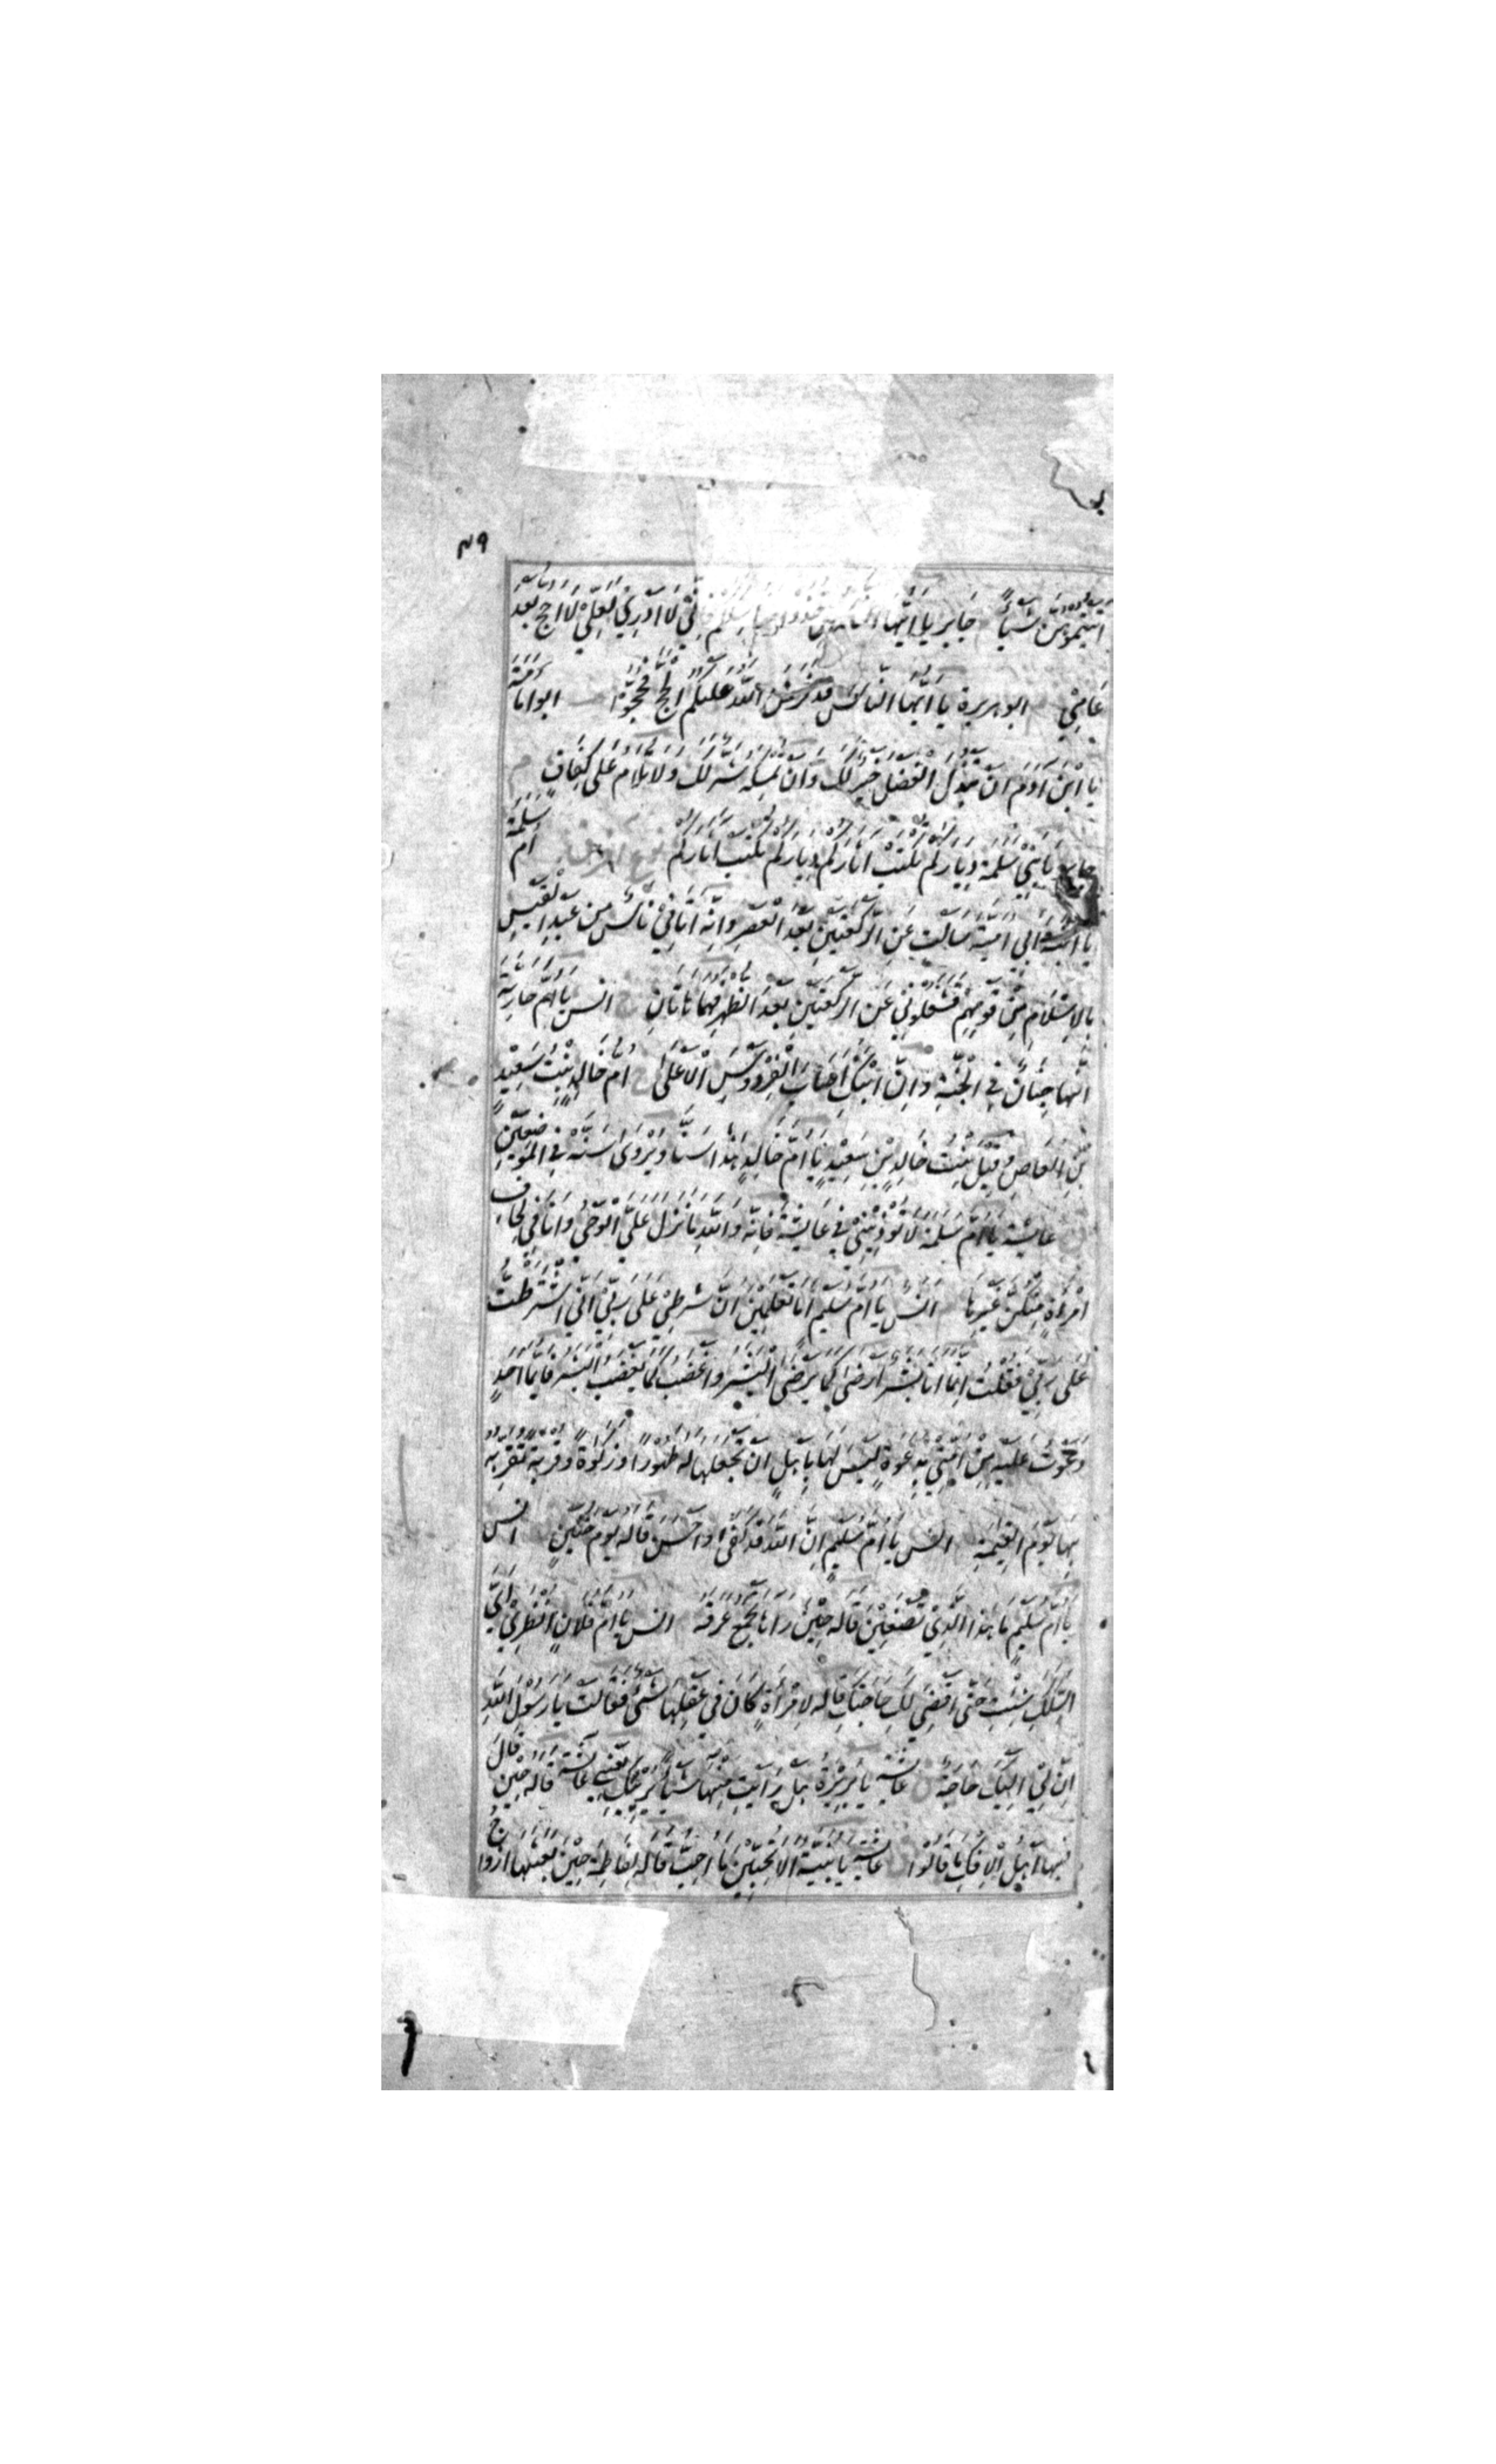 ٤٩
اٰتَيْتُمُوْهُنَّ شَيْئًا جَابِر يَا اَيُّهَا النَّاسُ خذوا فَاِنِّيْ لَا اَدْرِيْ لَعَلِّيْ لَا اَحُجُّ بَعْدَ
عَامِيْ ابو هريرة يَا اَيُّهَا النَّاسُ قَدْ فُرِضَ اللّٰهُ عَلَيْكُمُ الْحَجُّ فَحُجُّوْا ابو اُمَامَة
يَا ابْنَ اٰدَمَ اَنْ تَبْذُلَ الْفَضْلَ خَيْرٌ لَكَ وَاَنْ تُمْسِكَهُ شَرٌّ لَكَ وَلَا تُلَامُ عَلٰى كَفَافٍ م
جابر يَا بَنِيْ سَلِمَةَ دِيَارَكُمْ تُكْتَبْ اٰثَارُكُمْ دِيَارَكُمْ تُكْتَبْ اٰثَارُكُمْ اُمّ سَلَمَة
يَا ابْنَةَ اَبِيْ اُمَيَّةَ سَاَلْتِ عَنِ الرَّكْعَتَيْنِ بَعْدَ الْعَصْرِ وَاِنَّهُ اَتَانِيْ نَاسٌ مِنْ عَبْدِ الْقَيْسِ
بِالْاِسْلَامِ مِنْ قَوْمِهِمْ فَشَغَلُوْنِيْ عَنِ الرَّكْعَتَيْنِ بَعْدَ الظُّهْرِ فَهُمَا هَاتَانِ انس يَا اُمَّ حَارِثَةَ
اِنَّهَا جِنَانٌ فِي الْجَنَّةِ وَاِنَّ ابْنَكِ اَصَابَ الْفِرْدَوْسَ الْاَعْلٰى اُمّ خَالِدٍ بِنْتُ سَعِيْدِ
بْنِ الْعَاصِ وَقِيْلَ بِنْتُ خَالِدِ بْنِ سَعِيْدٍ يَا اُمَّ خَالِدٍ هٰذَا سَنَا وَيُرْوٰى سَنَهْ فِي الْمَوْضِعَيْنِ
عايشة يَا اُمَّ سَلَمَةَ لَا تُؤْذِيْنِيْ فِيْ عَايِشَةَ فَاِنَّهُ وَاللّٰهِ مَا نَزَلَ عَلَيَّ الْوَحْيُ وَاَنَا فِيْ لِحَافِ
امْرَءَةٍ مِنْكُنَّ غَيْرِهَا انس يَا اُمَّ سُلَيْمٍ اَمَا تَعْلَمِيْنَ اَنَّ شَرْطِيْ عَلٰى رَبِّيْ اَنِّي اشْتَرَطْتُ
عَلٰى رَبِّيْ فَقُلْتُ اِنَّمَا اَنَا بَشَرٌ اَرْضٰى كَمَا يَرْضَى الْبَشَرُ وَاَغْضَبُ كَمَا يَغْضَبُ الْبَشَرُ فَاَيُّمَا اَحَدٍ
دَعَوْتُ عَلَيْهِ مِنْ اُمَّتِيْ بِدَعْوَةٍ لَيْسَ لَهَا بِاَهْلٍ اَنْ تَجْعَلَهَا لَهُ طَهُوْرًا وَزَكٰوةً وَقُرْبَةً تُقَرِّبُهُ
بِهَا يَوْمَ الْقِيٰمَةِ انس يَا اُمَّ سُلَيْمٍ اِنَّ اللّٰهَ قَدْ كَفٰى وَاَحْسَنَ قَالَهُ يَوْمَ حُنَيْنٍ انس
يَا اُمَّ سُلَيْمٍ مَا هٰذَا الَّذِيْ تَصْنَعِيْنَ قَالَهُ حِيْنَ رَاٰهَا تَجْمَعُ عَرَقَهُ انس يَا اُمَّ فُلَانٍ انْظُرِيْ اَيَّ
السِّكَكِ شِئْتِ حَتّٰى اَقْضِيَ لَكِ حَاجَتَكِ قَالَهُ لِامْرَاَةٍ كَانَ فِيْ عَقْلِهَا شَيْءٌ فَقَالَتْ يَا رَسُوْلَ اللّٰهِ
اِنَّ لِيْ اِلَيْكَ حَاجَةً عائشة يَا بَرِيْرَةُ هَلْ رَاَيْتِ مِنْهَا شَيْئًا يُرِيْبُكِ يَعْنِيْ عَائِشَةَ قَالَهُ حِيْنَ قَالَ
فِيْهَا اَهْلُ الْاِفْكِ مَا قَالُوْا عائشة يَا بُنَيَّةُ اَلَا تُحِبِّيْنَ مَا اُحِبُّ قَالَهُ لِفَاطِمَةَ حِيْنَ بَعَثَهَا اَزْوَاجُ